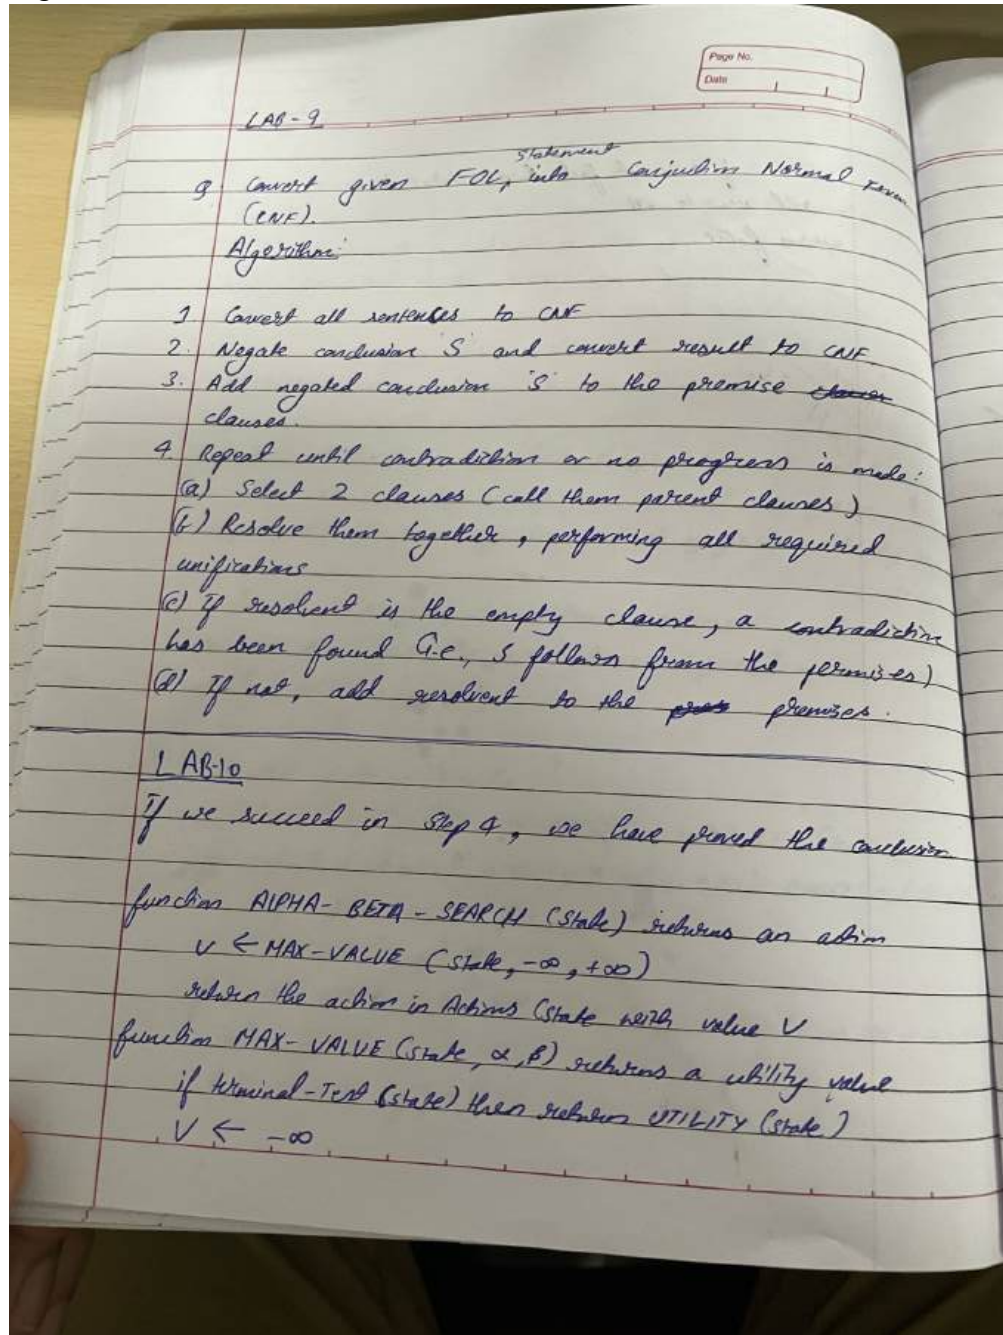 Page No.
Date
LAB-9
statement
Q Convert given FOL, into Conjuction Normal Form
(CNF).
Algorithm:
1 Convert all sentences to CNF
2. Negate conclusion S and convert result to CNF
3. Add negated conclusion S to the premise
clauses.
4. Repeat until contradiction or no progress is made:
(a) Select 2 clauses (call them parent clauses)
(b) Resolve them together, performing all required
unifications
(c) If resolvent is the empty clause, a contradiction
has been found (i.e., S follows from the permises)
(d) If not, add resolvent to the premises.
LAB-10
If we succeed in Step 4, we have proved the conclusion
function ALPHA-BETA-SEARCH (state) returns an action
V ← MAX-VALUE (state, -∞, +∞)
return the action in Actions (state with value V
function MAX-VALUE (state, α, β) returns a utility value
if terminal-Test (state) then return UTILITY (state)
V ← -∞